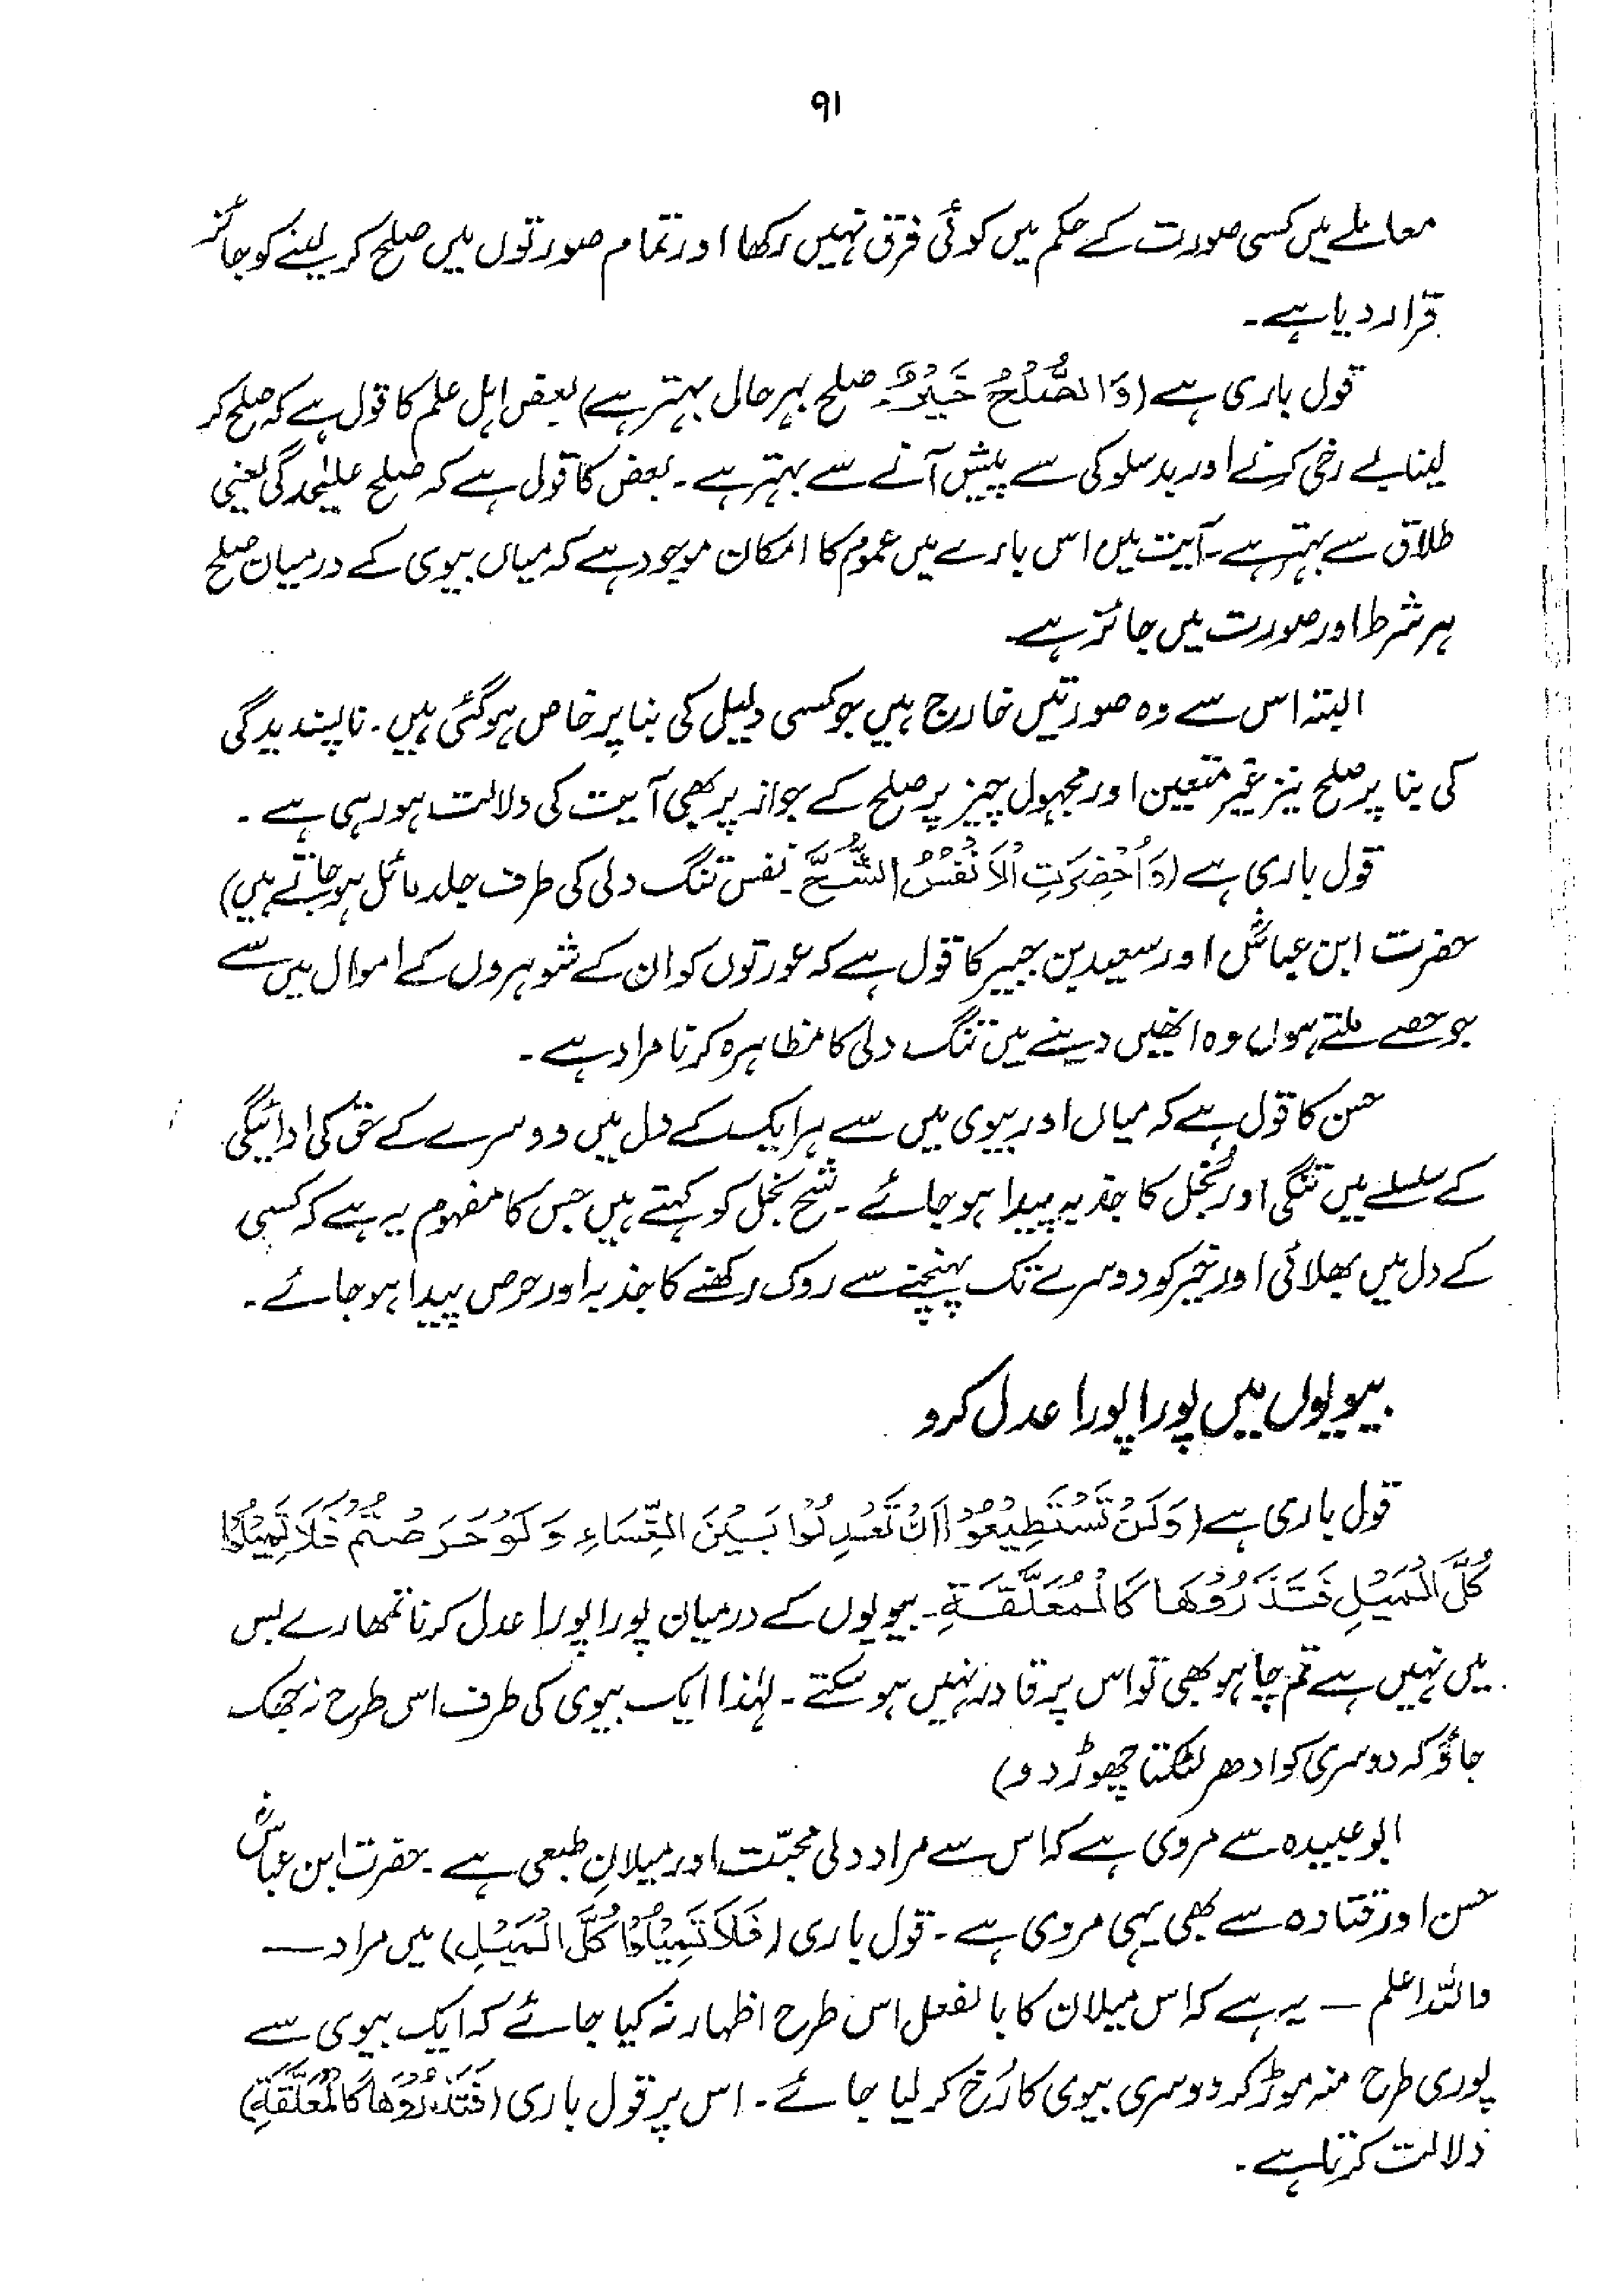 ۹۱
معاملے میں کسی صورت کے حکم میں کوئی فرق نہیں رکھا اور تمام صورتوں میں صلح کر لینے کو جائز
قرار دیا ہے۔
قول باری ہے (وَالصُّلْحُ خَيْرٌ۔ صلح بہرحال بہتر ہے) بعض اہل علم کا قول ہے کہ صلح کر
لینا بے رخی کرنے اور بدسلوکی سے پیش آنے سے بہتر ہے۔ بعض کا قول ہے کہ صلح علیٰحدگی یعنی
طلاق سے بہتر ہے۔ آیت میں اس بارے میں عموم کا امکان موجود ہے کہ میاں بیوی کے درمیان صلح
ہر شرط اور صورت میں جائز ہے۔
البتہ اس سے وہ صورتیں خارج ہیں جو کسی دلیل کی بنا پر خاص ہو گئی ہیں۔ ناپسندیدگی
کی بنا پر صلح نیز غیر متعین اور مجہول چیز پر صلح کے جواز پر بھی آیت کی دلالت ہو رہی ہے۔
قول باری ہے (وَأُحْضِرَتِ الْأَنْفُسُ الشُّحَّ۔ نفس تنگ دلی کی طرف جلد مائل ہو جاتے ہیں)
حضرت ابن عباسؓ اور سعید بن جبیر کا قول ہے کہ عورتوں کو ان کے شوہروں کے اموال میں سے
جو حصے ملتے ہوں وہ انھیں دینے میں تنگ دلی کا مظاہرہ کرنا مراد ہے۔
حسن کا قول ہے کہ میاں اور بیوی میں سے ہر ایک کے دل میں دوسرے کے حق کی ادائیگی
کے سلسلے میں تنگی اور بُخل کا جذبہ پیدا ہو جائے۔ شح بخل کو کہتے ہیں جس کا مفہوم یہ ہے کہ کسی
کے دل میں بھلائی اور خیر کو دوسرے تک پہنچنے سے روک رکھنے کا جذبہ اور حرص پیدا ہو جائے۔
بیویوں میں پورا پورا عدل کرو
قول باری ہے (وَلَنْ تَسْتَطِيْعُوْا أَنْ تَعْدِلُوْا بَيْنَ النِّسَاءِ وَلَوْ حَرَصْتُمْ فَلَا تَمِيْلُوْا
كُلَّ الْمَيْلِ فَتَذَرُوْهَا كَالْمُعَلَّقَةِ۔ بیویوں کے درمیان پورا پورا عدل کرنا تمھارے بس
میں نہیں ہے تم چاہو بھی تو اس پر قادر نہیں ہو سکتے۔ لہٰذا ایک بیوی کی طرف اس طرح نہ جھک
جاؤ کہ دوسری کو ادھر لٹکتا چھوڑ دو)
ابو عبیدہ سے مروی ہے کہ اس سے مراد دلی محبّت اور میلانِ طبعی ہے۔ حضرت ابن عباسؓ
حسن اور قتادہ سے بھی یہی مروی ہے۔ قول باری (فَلَا تَمِيْلُوْا كُلَّ الْمَيْلِ) میں مراد —
واللہ اعلم — یہ ہے کہ اس میلان کا بالفعل اس طرح اظہار نہ کیا جائے کہ ایک بیوی سے
پوری طرح منہ موڑ کر دوسری بیوی کا رُخ کر لیا جائے۔ اس پر قول باری (فَتَذَرُوْهَا كَالْمُعَلَّقَةِ)
دلالت کرتا ہے۔